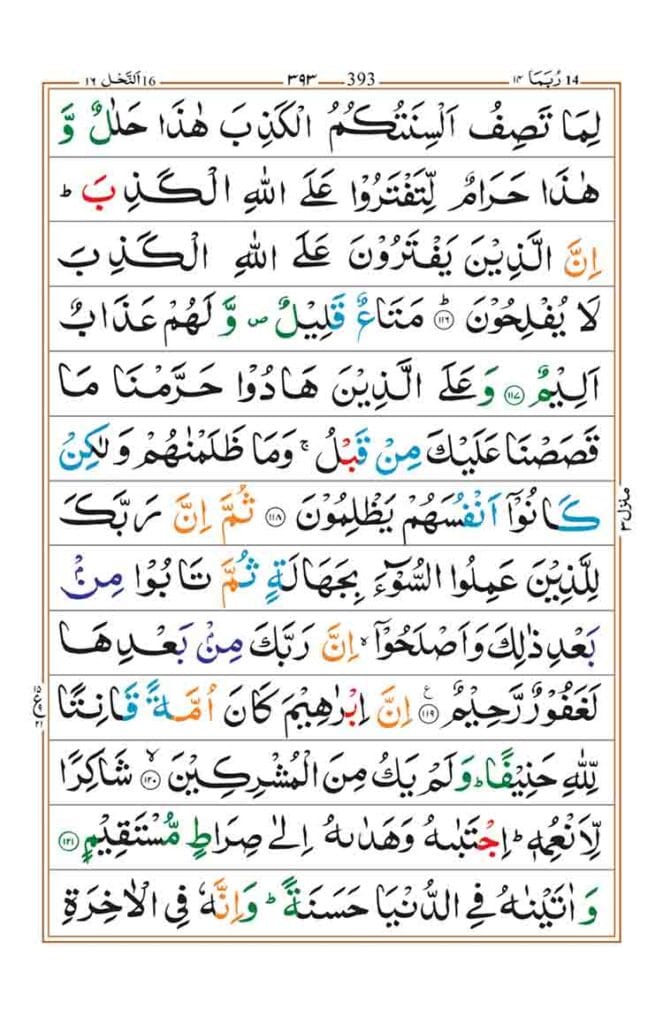 ١٤ رُبَمَا 14 393 ٣٩٣ ١٦ اَلنَّحْل 16
لِمَا تَصِفُ اَلْسِنَتُكُمُ الْكَذِبَ هٰذَا حَلٰلٌ وَّ
هٰذَا حَرَامٌ لِّتَفْتَرُوْا عَلَى اللّٰهِ الْكَذِبَ ؕ
اِنَّ الَّذِيْنَ يَفْتَرُوْنَ عَلَى اللّٰهِ الْكَذِبَ
لَا يُفْلِحُوْنَ ؕ ﴿۱۱۶﴾ مَتَاعٌ قَلِيْلٌ ۪ وَّ لَهُمْ عَذَابٌ
اَلِيْمٌ ﴿۱۱۷﴾ وَ عَلَى الَّذِيْنَ هَادُوْا حَرَّمْنَا مَا
قَصَصْنَا عَلَيْكَ مِنْ قَبْلُ ۚ وَمَا ظَلَمْنٰهُمْ وَلٰكِنْ
كَانُوْۤا اَنْفُسَهُمْ يَظْلِمُوْنَ ﴿۱۱۸﴾ ثُمَّ اِنَّ رَبَّكَ
منزل ۳
لِلَّذِيْنَ عَمِلُوا السُّوْٓءَ بِجَهَالَةٍ ثُمَّ تَابُوْا مِنْۢ
بَعْدِ ذٰلِكَ وَاَصْلَحُوْۤا ۙ اِنَّ رَبَّكَ مِنْۢ بَعْدِهَا
لَغَفُوْرٌ رَّحِيْمٌ ﴿۱۱۹﴾ اِنَّ اِبْرٰهِيْمَ كَانَ اُمَّةً قَانِتًا
لِّلّٰهِ حَنِيْفًا ؕ وَلَمْ يَكُ مِنَ الْمُشْرِكِيْنَ ۙ ﴿۱۲۰﴾ شَاكِرًا
لِّاَنْعُمِهٖ ؕ اِجْتَبٰىهُ وَهَدٰىهُ اِلٰى صِرَاطٍ مُّسْتَقِيْمٍ ﴿۱۲۱﴾
وَ اٰتَيْنٰهُ فِى الدُّنْيَا حَسَنَةً ؕ وَاِنَّهٗ فِى الْاٰخِرَةِ